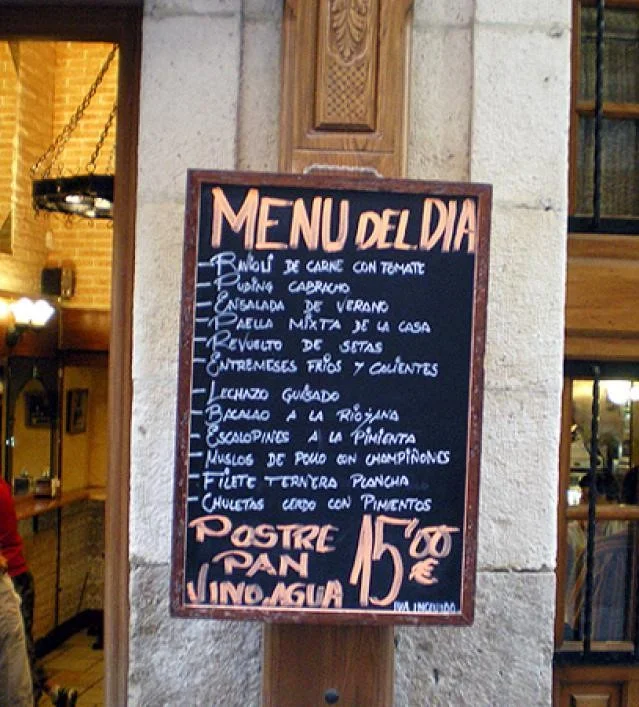 MENU DEL DIA
- RAVIOLI DE CARNE CON TOMATE
- PUDING CABRACHO
- ENSALADA DE VERANO
- PAELLA MIXTA DE LA CASA
- REVUELTO DE SETAS
- ENTREMESES FRIOS Y CALIENTES
- LECHAZO GUISADO
- BACALAO A LA RIOJANA
- ESCALOPINES A LA PIMIENTA
- MUSLOS DE POLLO CON CHAMPIÑONES
- FILETE TERNERA PLANCHA
- CHULETAS CERDO CON PIMIENTOS
POSTRE
PAN
VINO.AGUA
15'00 €
IVA INCLUIDO